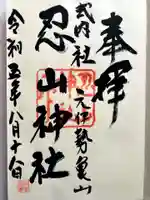 奉拝
式内社 元伊勢亀山
忍山神社
令和五年八月十七日